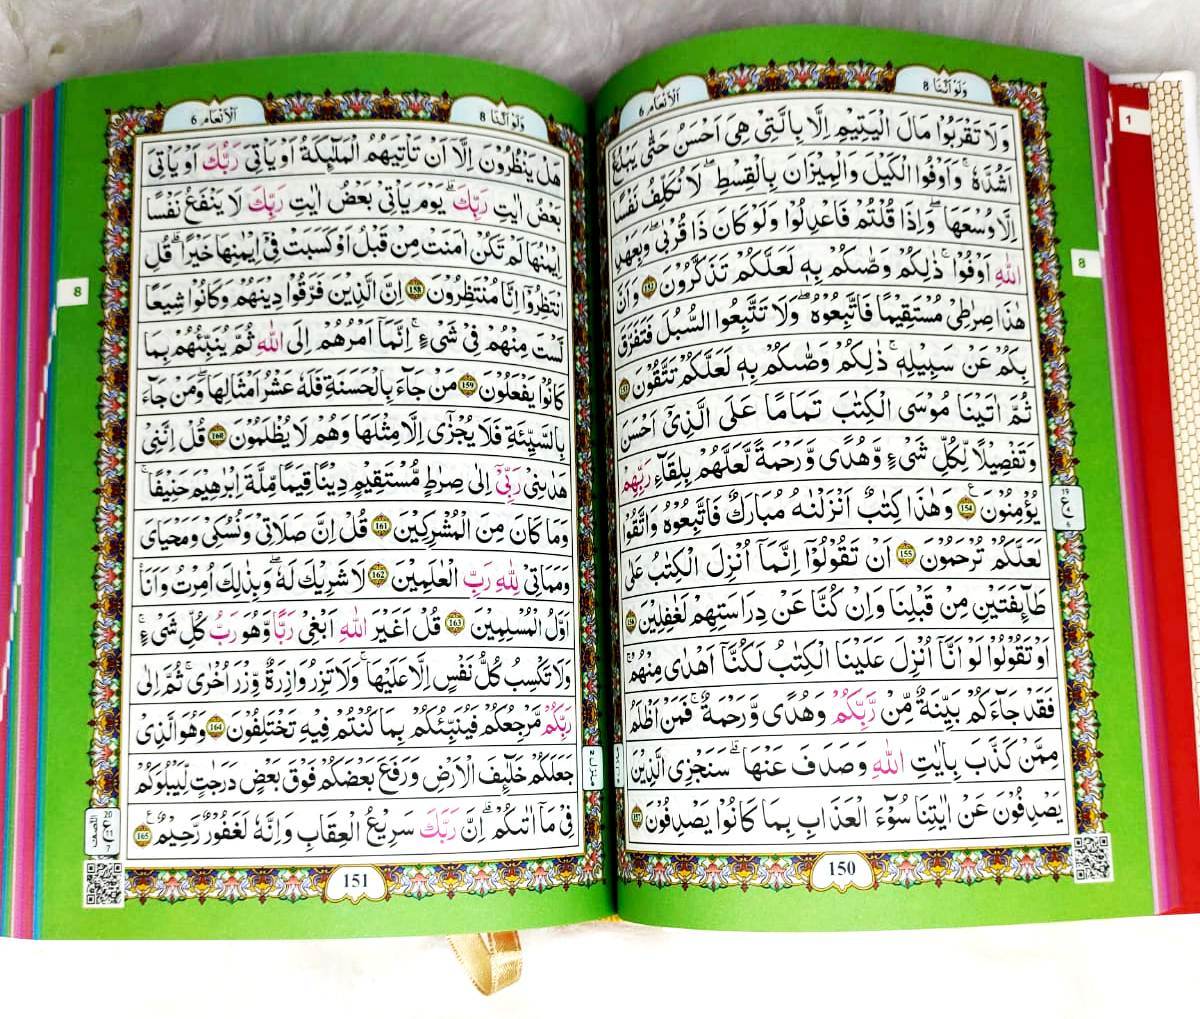 وَلَوْ اَنَّنَا 8
اَلْاَنْعَام 6
وَلَا تَقْرَبُوْا مَالَ الْيَتِيْمِ اِلَّا بِالَّتِيْ هِيَ اَحْسَنُ حَتّٰى يَبْلُغَ
اَشُدَّهٗ ۚ وَاَوْفُوا الْكَيْلَ وَالْمِيْزَانَ بِالْقِسْطِ ۖ لَا نُكَلِّفُ نَفْسًا
اِلَّا وُسْعَهَا ۖ وَاِذَا قُلْتُمْ فَاعْدِلُوْا وَلَوْ كَانَ ذَا قُرْبٰى ۖ وَبِعَهْدِ
اللّٰهِ اَوْفُوْا ۚ ذٰلِكُمْ وَصّٰىكُمْ بِهٖ لَعَلَّكُمْ تَذَكَّرُوْنَ 152 وَاَنَّ
هٰذَا صِرٰطِيْ مُسْتَقِيْمًا فَاتَّبِعُوْهُ ۖ وَلَا تَتَّبِعُوا السُّبُلَ فَتَفَرَّقَ
بِكُمْ عَنْ سَبِيْلِهٖ ۚ ذٰلِكُمْ وَصّٰىكُمْ بِهٖ لَعَلَّكُمْ تَتَّقُوْنَ 153
ثُمَّ اٰتَيْنَا مُوْسَى الْكِتٰبَ تَمَامًا عَلَى الَّذِيْٓ اَحْسَنَ
وَتَفْصِيْلًا لِّكُلِّ شَيْءٍ وَّهُدًى وَّرَحْمَةً لَّعَلَّهُمْ بِلِقَآءِ رَبِّهِمْ
يُؤْمِنُوْنَ 154 وَهٰذَا كِتٰبٌ اَنْزَلْنٰهُ مُبَارَكٌ فَاتَّبِعُوْهُ وَاتَّقُوْا
لَعَلَّكُمْ تُرْحَمُوْنَ 155 اَنْ تَقُوْلُوْٓا اِنَّمَآ اُنْزِلَ الْكِتٰبُ عَلٰى
طَآئِفَتَيْنِ مِنْ قَبْلِنَا وَاِنْ كُنَّا عَنْ دِرَاسَتِهِمْ لَغٰفِلِيْنَ 156
اَوْ تَقُوْلُوْا لَوْ اَنَّآ اُنْزِلَ عَلَيْنَا الْكِتٰبُ لَكُنَّآ اَهْدٰى مِنْهُمْ ۚ
فَقَدْ جَآءَكُمْ بَيِّنَةٌ مِّنْ رَّبِّكُمْ وَهُدًى وَّرَحْمَةٌ ۚ فَمَنْ اَظْلَمُ
مِمَّنْ كَذَّبَ بِاٰيٰتِ اللّٰهِ وَصَدَفَ عَنْهَا ۗ سَنَجْزِى الَّذِيْنَ
يَصْدِفُوْنَ عَنْ اٰيٰتِنَا سُوْٓءَ الْعَذَابِ بِمَا كَانُوْا يَصْدِفُوْنَ 157
150
8
1
وَلَوْ اَنَّنَا 8
اَلْاَنْعَام 6
هَلْ يَنْظُرُوْنَ اِلَّآ اَنْ تَاْتِيَهُمُ الْمَلٰٓئِكَةُ اَوْ يَاْتِيَ رَبُّكَ اَوْ يَاْتِيَ
بَعْضُ اٰيٰتِ رَبِّكَ ۗ يَوْمَ يَاْتِيْ بَعْضُ اٰيٰتِ رَبِّكَ لَا يَنْفَعُ نَفْسًا
اِيْمٰنُهَا لَمْ تَكُنْ اٰمَنَتْ مِنْ قَبْلُ اَوْ كَسَبَتْ فِيْٓ اِيْمٰنِهَا خَيْرًا ۗ قُلِ
انْتَظِرُوْٓا اِنَّا مُنْتَظِرُوْنَ 158 اِنَّ الَّذِيْنَ فَرَّقُوْا دِيْنَهُمْ وَكَانُوْا شِيَعًا
لَّسْتَ مِنْهُمْ فِيْ شَيْءٍ ۚ اِنَّمَآ اَمْرُهُمْ اِلَى اللّٰهِ ثُمَّ يُنَبِّئُهُمْ بِمَا
كَانُوْا يَفْعَلُوْنَ 159 مَنْ جَآءَ بِالْحَسَنَةِ فَلَهٗ عَشْرُ اَمْثَالِهَا ۖ وَمَنْ جَآءَ
بِالسَّيِّئَةِ فَلَا يُجْزٰٓى اِلَّا مِثْلَهَا وَهُمْ لَا يُظْلَمُوْنَ 160 قُلْ اِنَّنِيْ
هَدٰىنِيْ رَبِّيْٓ اِلٰى صِرٰطٍ مُّسْتَقِيْمٍ دِيْنًا قِيَمًا مِّلَّةَ اِبْرٰهِيْمَ حَنِيْفًا ۚ
وَمَا كَانَ مِنَ الْمُشْرِكِيْنَ 161 قُلْ اِنَّ صَلَاتِيْ وَنُسُكِيْ وَمَحْيَايَ
وَمَمَاتِيْ لِلّٰهِ رَبِّ الْعٰلَمِيْنَ 162 لَا شَرِيْكَ لَهٗ ۚ وَبِذٰلِكَ اُمِرْتُ وَاَنَا۠
اَوَّلُ الْمُسْلِمِيْنَ 163 قُلْ اَغَيْرَ اللّٰهِ اَبْغِيْ رَبًّا وَّهُوَ رَبُّ كُلِّ شَيْءٍ ۚ
وَلَا تَكْسِبُ كُلُّ نَفْسٍ اِلَّا عَلَيْهَا ۚ وَلَا تَزِرُ وَازِرَةٌ وِّزْرَ اُخْرٰى ۚ ثُمَّ اِلٰى
رَبِّكُمْ مَّرْجِعُكُمْ فَيُنَبِّئُكُمْ بِمَا كُنْتُمْ فِيْهِ تَخْتَلِفُوْنَ 164 وَهُوَ الَّذِيْ
جَعَلَكُمْ خَلٰٓئِفَ الْاَرْضِ وَرَفَعَ بَعْضَكُمْ فَوْقَ بَعْضٍ دَرَجٰتٍ لِّيَبْلُوَكُمْ
فِيْ مَآ اٰتٰىكُمْ ۗ اِنَّ رَبَّكَ سَرِيْعُ الْعِقَابِ وَاِنَّهٗ لَغَفُوْرٌ رَّحِيْمٌ 165
151
8